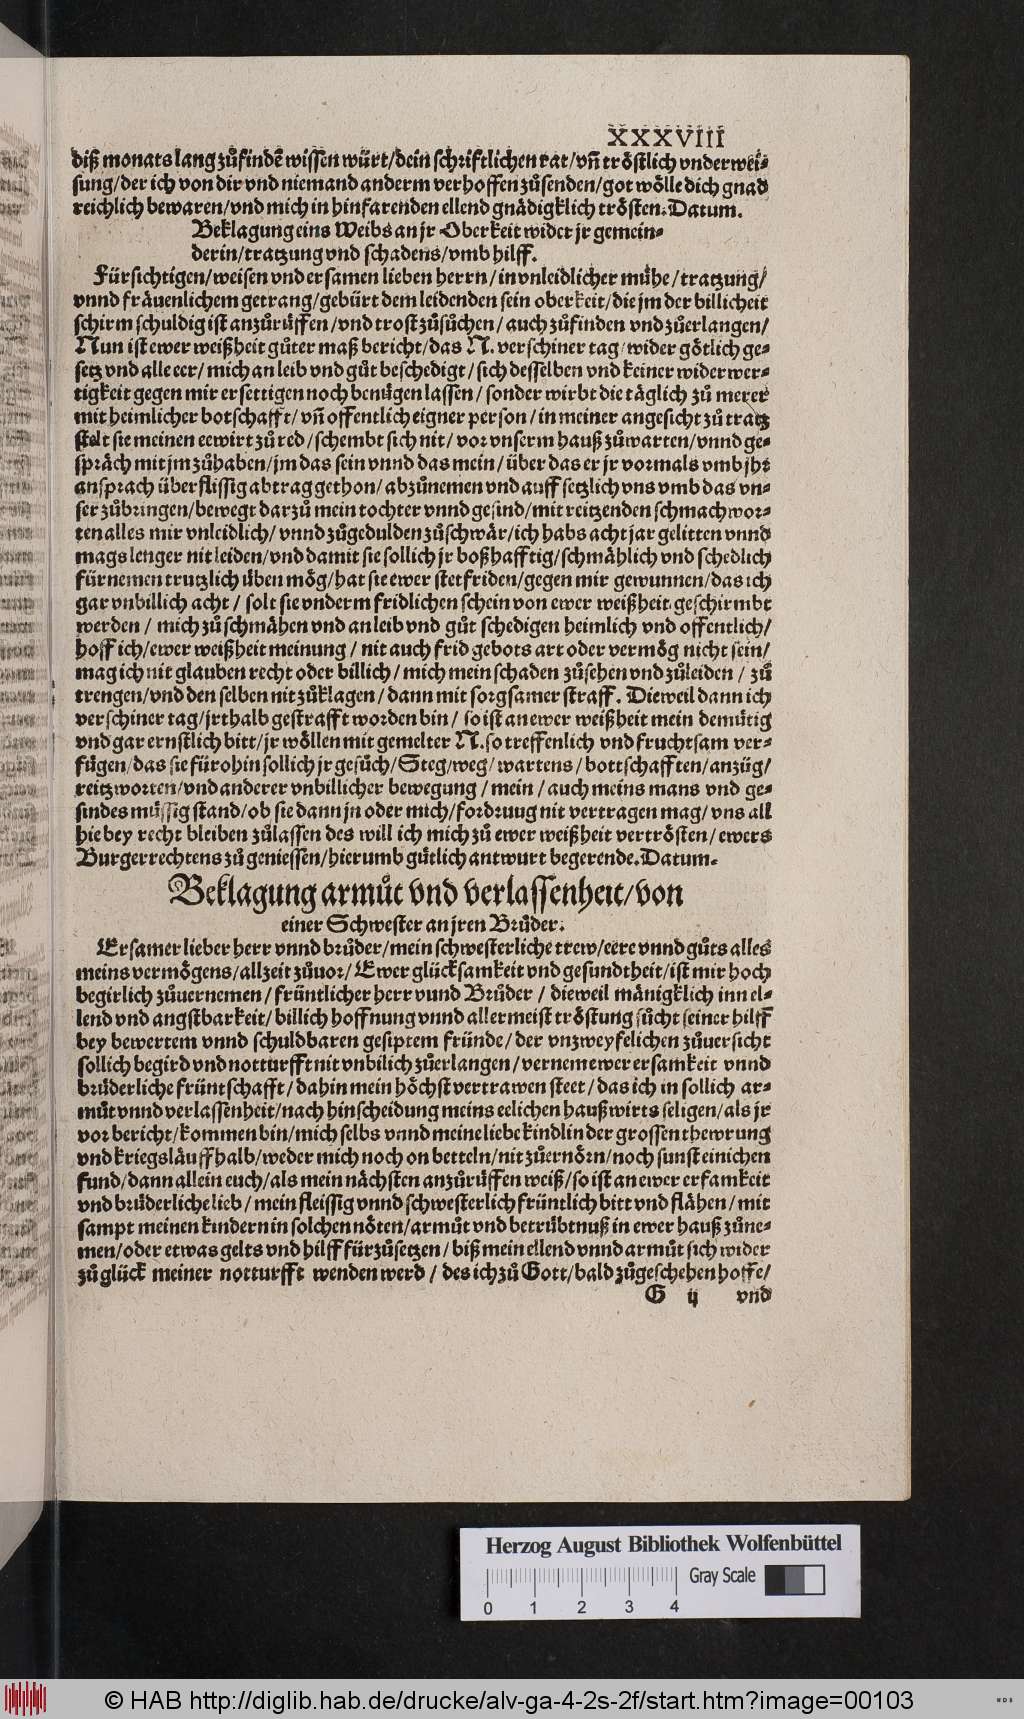 XXXVIII
diß monats lang zůfindē wissen würt/dein schriftlichen rat/vñ tröstlich vnderwei-
sung/der ich von dir vnd niemand anderm verhoffen zůsenden/got wölle dich gnad
reichlich bewaren/vnd mich in hinfarenden ellend gnädigklich trösten. Datum.
Beklagung eins Weibs an jr Oberkeit wider jr gemein-
derin/tratzung vnd schadens/vmb hilff.
Fürsichtigen/weisen vnd ersamen lieben herrn/in vnleidlicher mühe/tratzung/
vnnd fräuenlichem getrang/gebürt dem leidenden sein oberkeit/die jm der billicheit
schirm schuldig ist anzůrüffen/vnd trost zůsůchen/auch zůfinden vnd zůerlangen/
Nun ist ewer weißheit gůter maß bericht/das N. verschiner tag/wider götlich ge-
setz vnd alle eer/mich an leib vnd gůt beschedigt/sich desselben vnd keiner widerwer-
tigkeit gegen mir ersettigen noch benügen lassen/sonder wirbt die täglich zů merer
mit heimlicher botschafft/vñ offentlich eigner person/in meiner angesicht zů tratz
stelt sie meinen eewirt zů red/schembt sich nit/vor vnserm hauß zůwarten/vnnd ge-
spräch mit jm zůhaben/jm das sein vnnd das mein/über das er jr vormals vmb jht
ansprach überflissig abtrag gethon/abzůnemen vnd auffsetzlich vns vmb das vn-
ser zůbringen/bewegt darzů mein tochter vnnd gesind/mit reitzenden schmachwor-
ten alles mir vnleidlich/vnnd zůgedulden zůschwär/ich habs acht jar gelitten vnnd
mags lenger nit leiden/vnd damit sie sollich jr boßhafftig/schmählich vnd schedlich
fürnemen trutzlich üben mög/hat sie ewer stetfriden/gegen mir gewunnen/das ich
gar vnbillich acht/solt sie vnderm fridlichen schein von ewer weißheit geschirmbt
werden/mich zů schmähen vnd an leib vnd gůt schedigen heimlich vnd offentlich/
hoff ich/ewer weißheit meinung/nit auch frid gebots art oder vermög nicht sein/
mag ich nit glauben recht oder billich/mich mein schaden zůsehen vnd zůleiden/zů
trengen/vnd den selben nit zůklagen/dann mit sorgsamer straff. Dieweil dann ich
verschiner tag/jrthalb gestrafft worden bin/so ist an ewer weißheit mein demütig
vnd gar ernstlich bitt/jr wöllen mit gemelter N. so treffenlich vnd fruchtsam ver-
fügen/das sie fürohin sollich jr gesůch/Steg/weg/wartens/bottschafften/anzüg/
reitzworten/vnd anderer vnbillicher bewegung/mein/auch meins mans vnd ge-
sindes müssig stand/ob sie dann jn oder mich/fordruug nit vertragen mag/vns all
hie bey recht bleiben zůlassen des will ich mich zů ewer weißheit vertrösten/ewers
Burgerrechtens zů geniessen/hierumb gütlich antwurt begerende. Datum.
Beklagung armůt vnd verlassenheit/von
einer Schwester an jren Brůder.
Ersamer lieber herr vnnd brůder/mein schwesterliche trew/eere vnnd gůts alles
meins vermögens/allzeit zůuor/Ewer glücksamkeit vnd gesundtheit/ist mir hoch
begirlich zůuernemen/früntlicher herr vund Brůder/dieweil mänigklich inn el-
lend vnd angstbarkeit/billich hoffnung vnnd allermeist tröstung sůcht seiner hilff
bey bewertem vnnd schuldbaren gesiptem fründe/der vnzweyfelichen zůuersicht
sollich begird vnd notturfft nit vnbilich zůerlangen/vernem ewer ersamkeit vnnd
brüderliche früntschafft/dahin mein höchst vertrawen steet/das ich in sollich ar-
můt vnnd verlassenheit/nach hinscheidung meins eelichen haußwirts seligen/als jr
vor bericht/kommen bin/mich selbs vnnd meine liebe kindlin der grossen thewrung
vnd kriegsläuff halb/weder mich noch on betteln/nit zůernörn/noch sunst einichen
fund/dann allein euch/als mein nächsten anzůrüffen weiß/so ist an ewer ersamkeit
vnd brüderliche lieb/mein fleissig vnnd schwesterlich früntlich bitt vnd flähen/mit
sampt meinen kindern in solchen nöten/armůt vnd betrübtnuß in ewer hauß zůne-
men/oder etwas gelts vnd hilff fürzůsetzen/biß mein ellend vnnd armůt sich wider
zů glück meiner notturfft wenden werd/des ich zů Gott/bald zůgeschehen hoffe/
G ij vnd
Herzog August Bibliothek Wolfenbüttel
Gray Scale
0 1 2 3 4
© HAB http://diglib.hab.de/drucke/alv-ga-4-2s-2f/start.htm?image=00103